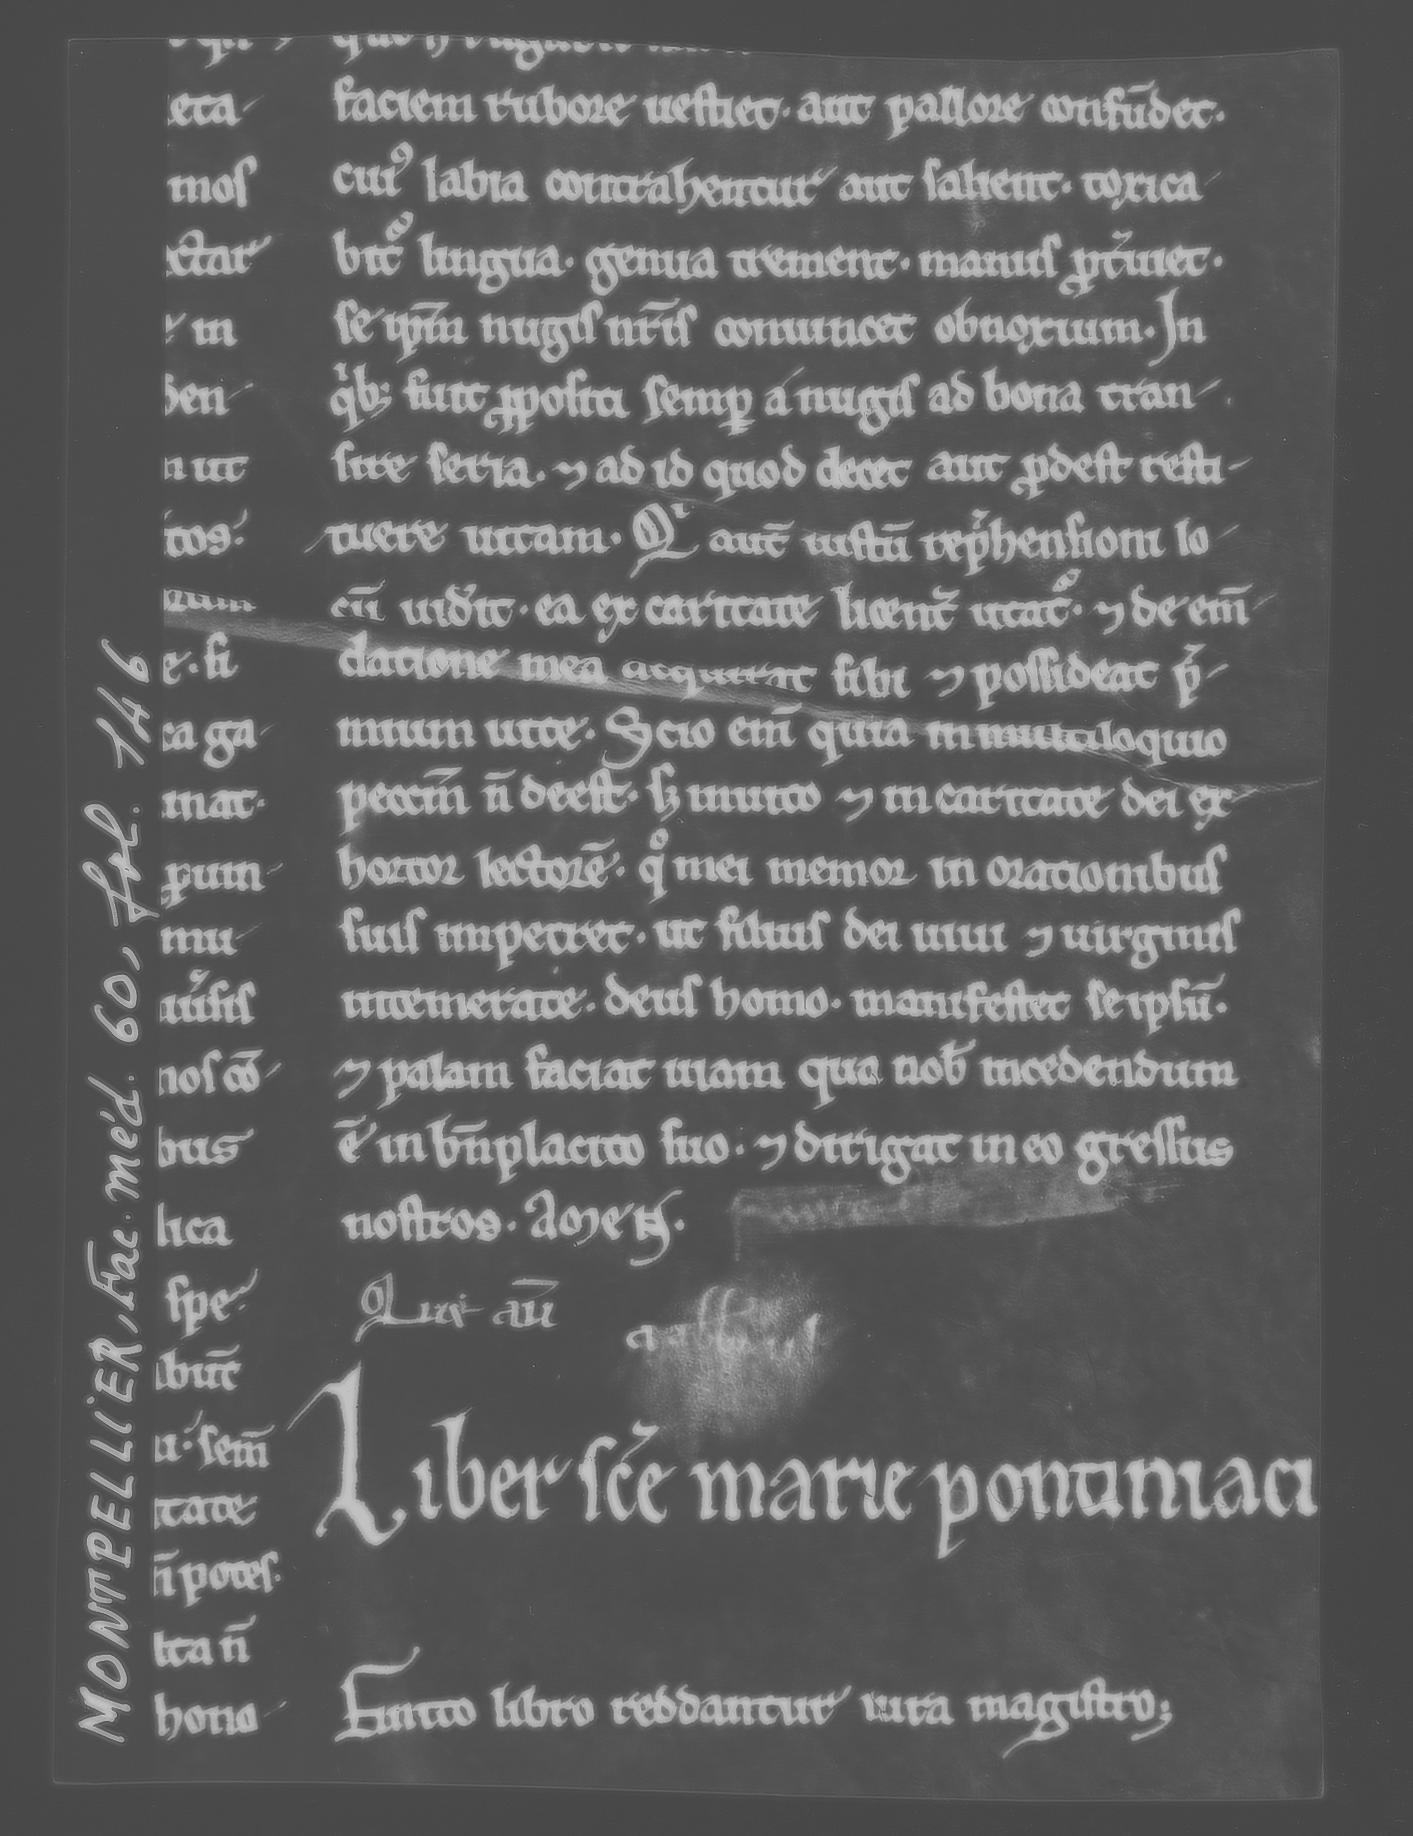 MONTPELLIER, Fac. méd. 60, fol. 146
eta
mos
ctar
in
ben
n ut
tos.
num
e. si
ca ga
mat.
prum
mu
nos cō
bus
lica
spe
bunt̄
a. sem̄
itate
n̄ potes.
lta n̄
hono
faciem rubore uestiet. aut pallore confūdet.
cuiꝰ labia contrahentur aut salient. toxica
bit᷑ lingua. genua trement. manus
se ip̄m nugis nr̄is conuincet obnoxium. In
qͥbꝫ fuit ꝓpositi semꝑ a nugis ad bona tran
sire seria. ⁊ ad id quod decet aut ꝓdest resti
tuere uitam. Qͥ aut̄ iustū rep̄hensioni lo
cū uiderit. ea ex caritate licent᷑ utat᷑. ⁊ de em̄
datione mea acquirat sibi ⁊ possideat p̄
mium uite. Scio em̄ quia in multiloquio
peccm̄ n̄ deest. sꝫ inuito ⁊ in caritate dei ex
hortor lectorē. qͦ mei memor in orationibus
suis impetret. ut filius dei uiui ⁊ uirginis
intemerate. deus homo. manifestet se ipsū.
⁊ palam faciat uiam qua nob̄ incedendum
ē in bn̄placito suo. ⁊ dirigat in eo gressus
nostros. Amen.
Liber sc̄e marie pontiniaci
Finito libro reddantur iura magistro;